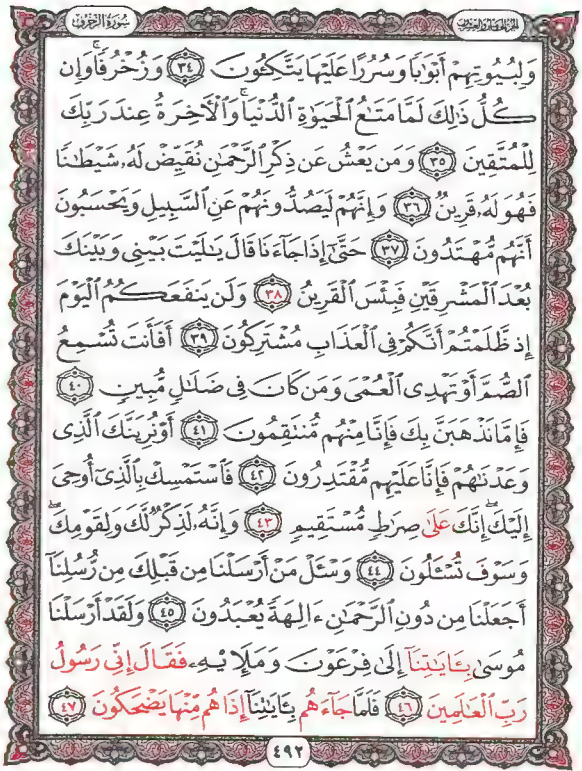 الجزء الخامس والعشرون
سورة الزخرف
وَلِبُيُوتِهِمْ أَبْوَٰبًا وَسُرُرًا عَلَيْهَا يَتَّكِـُٔونَ ٣٤ وَزُخْرُفًا ۚ وَإِن
كُلُّ ذَٰلِكَ لَمَّا مَتَـٰعُ الْحَيَوٰةِ الدُّنْيَا ۚ وَالْأَخِرَةُ عِندَ رَبِّكَ
لِلْمُتَّقِينَ ٣٥ وَمَن يَعْشُ عَن ذِكْرِ الرَّحْمَـٰنِ نُقَيِّضْ لَهُۥ شَيْطَـٰنًا
فَهُوَ لَهُۥ قَرِينٌ ٣٦ وَإِنَّهُمْ لَيَصُدُّونَهُمْ عَنِ السَّبِيلِ وَيَحْسَبُونَ
أَنَّهُم مُّهْتَدُونَ ٣٧ حَتَّىٰٓ إِذَا جَآءَنَا قَالَ يَـٰلَيْتَ بَيْنِى وَبَيْنَكَ
بُعْدَ الْمَشْرِقَيْنِ فَبِئْسَ الْقَرِينُ ٣٨ وَلَن يَنفَعَكُمُ الْيَوْمَ
إِذ ظَّلَمْتُمْ أَنَّكُمْ فِى الْعَذَابِ مُشْتَرِكُونَ ٣٩ أَفَأَنتَ تُسْمِعُ
الصُّمَّ أَوْ تَهْدِى الْعُمْىَ وَمَن كَانَ فِى ضَلَـٰلٍ مُّبِينٍ ٤٠
فَإِمَّا نَذْهَبَنَّ بِكَ فَإِنَّا مِنْهُم مُّنتَقِمُونَ ٤١ أَوْ نُرِيَنَّكَ الَّذِى
وَعَدْنَـٰهُمْ فَإِنَّا عَلَيْهِم مُّقْتَدِرُونَ ٤٢ فَاسْتَمْسِكْ بِالَّذِىٓ أُوحِىَ
إِلَيْكَ ۖ إِنَّكَ عَلَىٰ صِرَٰطٍ مُّسْتَقِيمٍ ٤٣ وَإِنَّهُۥ لَذِكْرٌ لَّكَ وَلِقَوْمِكَ ۖ
وَسَوْفَ تُسْـَٔلُونَ ٤٤ وَسْـَٔلْ مَنْ أَرْسَلْنَا مِن قَبْلِكَ مِن رُّسُلِنَآ
أَجَعَلْنَا مِن دُونِ الرَّحْمَـٰنِ ءَالِهَةً يُعْبَدُونَ ٤٥ وَلَقَدْ أَرْسَلْنَا
مُوسَىٰ بِـَٔايَـٰتِنَآ إِلَىٰ فِرْعَوْنَ وَمَلَإِي۟هِۦ فَقَالَ إِنِّى رَسُولُ
رَبِّ الْعَـٰلَمِينَ ٤٦ فَلَمَّا جَآءَهُم بِـَٔايَـٰتِنَآ إِذَا هُم مِّنْهَا يَضْحَكُونَ ٤٧
٤٩٢